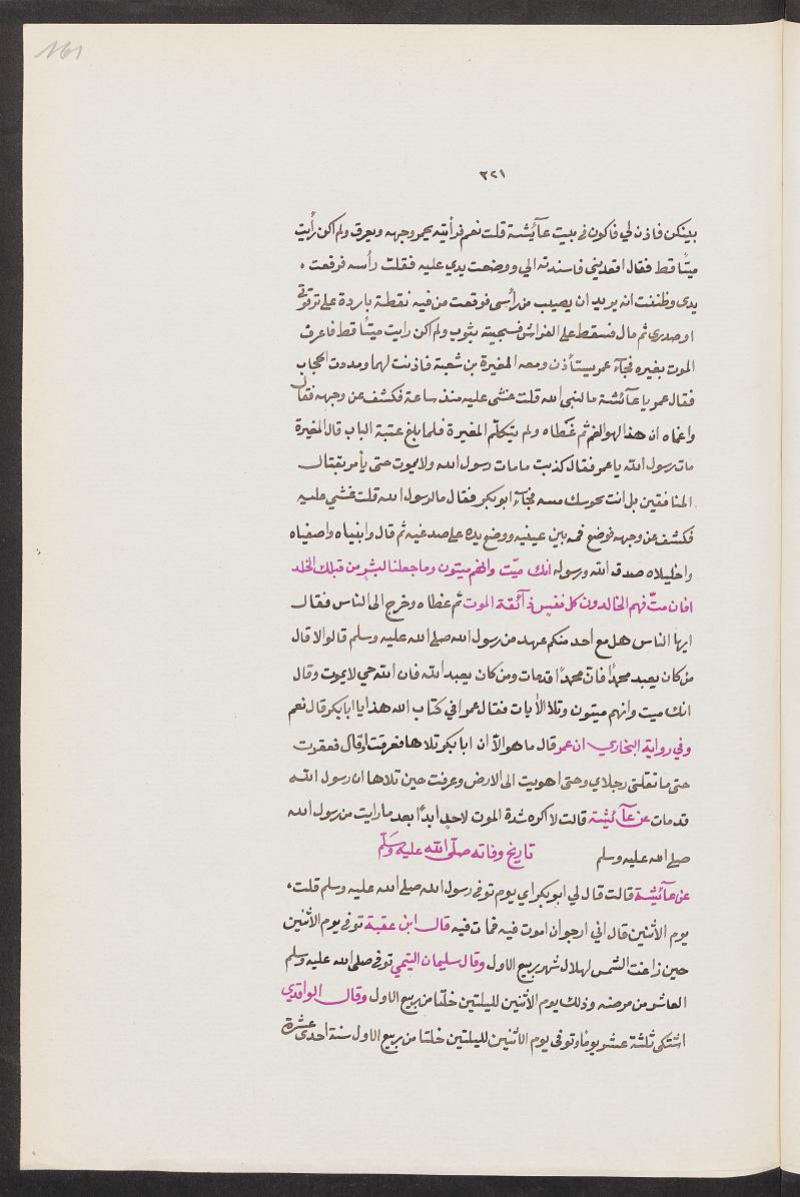 161
٣٢١
بينكن فاذن لي فاكون في بيت عآئشة قلت نعم فرأيته يحمر وجهه ويعرق ولم اكن رأيت
ميتًا قط فقال اقعديني فاسندته الي ووضعت يدي عليه فقلب رأسه فرفعت
يدى وظننت انه يريد ان يصيب من رأسى فوقعت من فيه نقطة باردة على ترقوتى
او صدرى ثم مال فسقط على الفراش فسجيته بثوب ولم اكن رايت ميتًا قط فاعرف
الموت بغيره فجآء عمر يستأذن ومعه المغيرة بن شعبة فاذنت لهما ومددت الحجاب
فقال عمر يا عآئشة ما لنبى الله قلت غشى عليه منذ ساعة فكشف عن وجهه فقال
واغماه ان هذا لهو الغم ثم غطاه ولم يتكلّم المغيرة فلما بلغ عتبة الباب قال المغيرة
مات رسول الله يا عمر فقال كذبت ما مات رسول الله ولا يموت حتى يأمر بقتال
المنافقين بل انت تحوسك فتنة فجآء ابو بكر فقال ما لرسول الله قلت غشي عليه
فكشف عن وجهه فوضع فمه بين عينيه ووضع يده على صدغيه ثم قال وانبياه واصفياه
واخليلاه صدق الله ورسوله انك ميّت وانهم ميتون وما جعلنا لبشر من قبلك الخلد
افان متّ فهم الخالدون كل نفس ذآئقة الموت ثم غطاه وخرج الى الناس فقال
ايها الناس هل مع احد منكم عهد من رسول الله صلى الله عليه وسلم قالوا لا قال
من كان يعبد محمدًا فان محمدًا قد مات ومن كان يعبد الله فان الله حي لا يموت وقال
انك ميت وانهم ميتون وتلا الأيات فقال عمر افي كتاب الله هذا يا ابا بكر قال نعم
وفي رواية البخاري ان عمر قال ما هو الّا ان ابا بكر تلاها فعرقت او قال فعقرت
حتى ما تقلني رجلاي وحتى اهويت الى الارض وعرفت حين تلاها ان رسول الله
قد مات عن عآئشة قالت لا اكره شدة الموت لاحد ابدًا بعد ما رايت من رسول الله
صلى الله عليه وسلم تاريخ وفاته صلّى الله عليه وسلّم
عن عآئشة قالت قال لي ابو بكر اي يوم توفى رسول الله صلى الله عليه وسلم قلت
يوم الأثنين قال اني ارجو ان اموت فيه فمات فيه قال ابن عقبة توفى يوم الأثنين
حين زاغت الشمس لهلال شهر ربيع الاول وقال سليمان التيمي توفى صلى الله عليه وسلم
العاشر من مرضه وذلك يوم الأثنين لليلتين خلتا من ربيع الاول وقال الواقدي
اشتكى ثلثة عشر يومًا وتوفى يوم الأثنين لليلتين خلتا من ربيع الاول سنة احدى عشرة